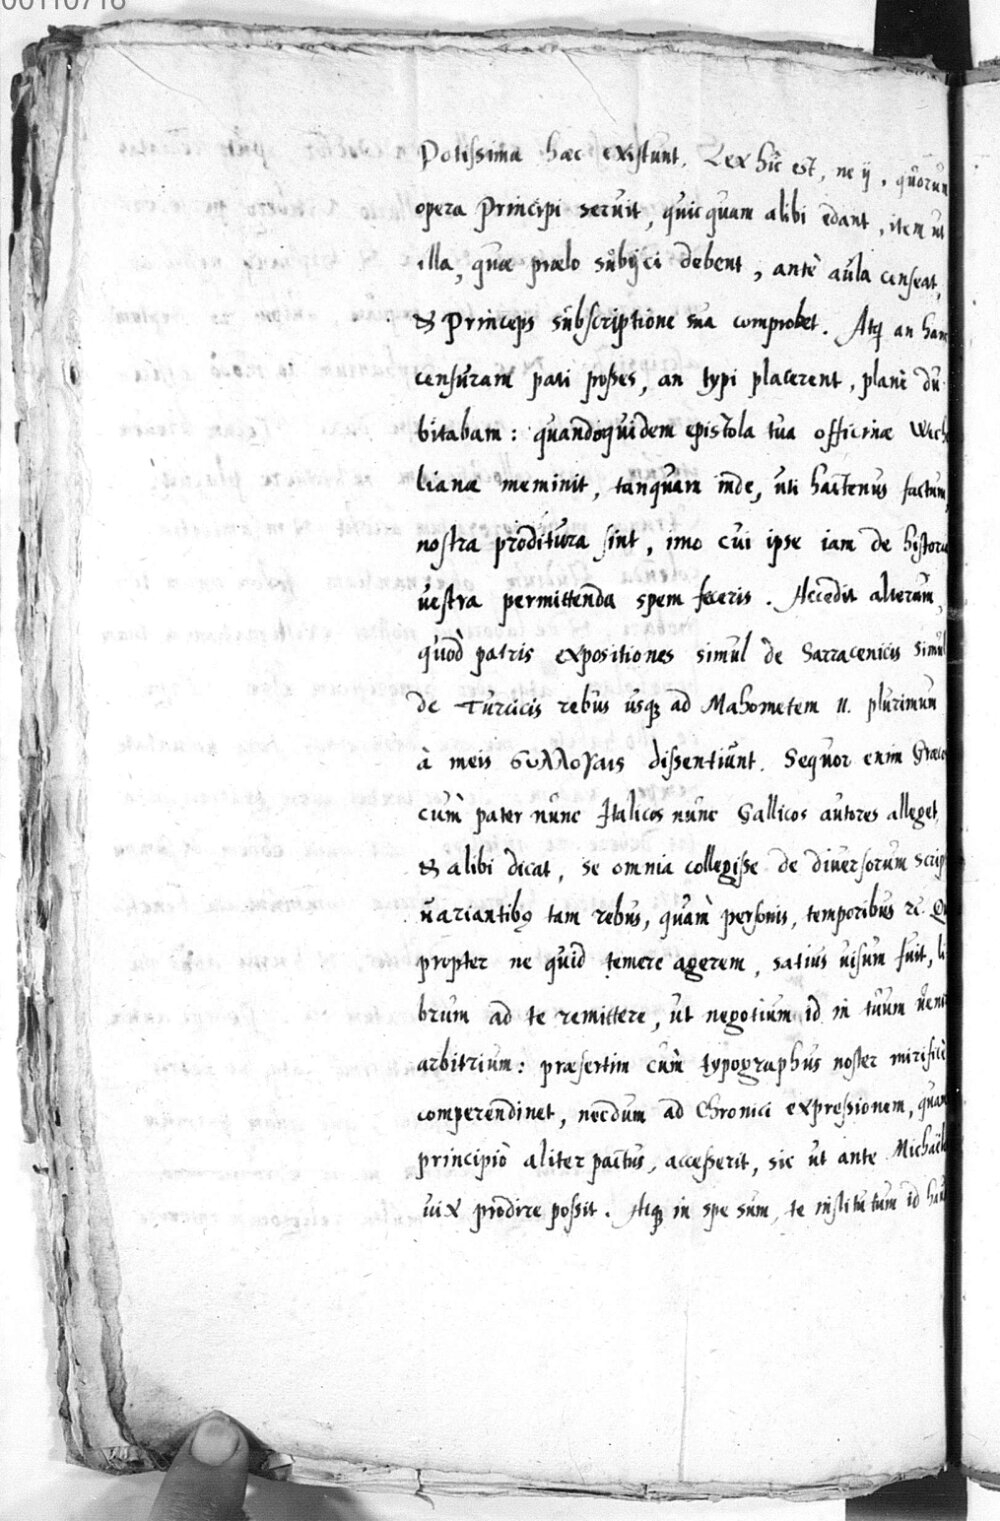 00110716
Potissima haec existunt. Lex hic est, ne ij, quorum
opera Principi seruit, quicquam alibi edant, item ut
illa, quae praelo subijci debent, antè aula censeat,
& Princeps subscriptione sua comprobet. Atq; an han
censuram pati posses, an typi placerent, planè du
bitabam: quandoquidem epistola tua officinae Wech
lianae meminit, tanquam inde, uti hactenus factum,
nostra proditura sint, imo cui ipse iam de historia
uestra permittenda spem feceris. Accedit alterum,
quòd patris expositiones simul de Sarracenicis simul
de Turcicis rebus usq; ad Mahometem II. plurimum
à meis συλλογαις dissentiunt. Sequor enim Graeco
cùm pater nunc Italicos nunc Gallicos autores alleget,
& alibi dicat, se omnia collegisse de diuersorum scrip
uariantibq tam rebus, quàm personis, temporibus &c. Qu
propter ne quid temere agerem, satius uisum fuit, li
brum ad te remittere, ut negotium id in tuum ueni
arbitrium: praesertim cùm typographus noster mirificè
comperendinet, necdum ad Chronici expressionem, quam
principiò aliter pactus, accesserit, sic ut ante Michaël
uix prodire possit. Atq; in spe sum, te institutum id hau